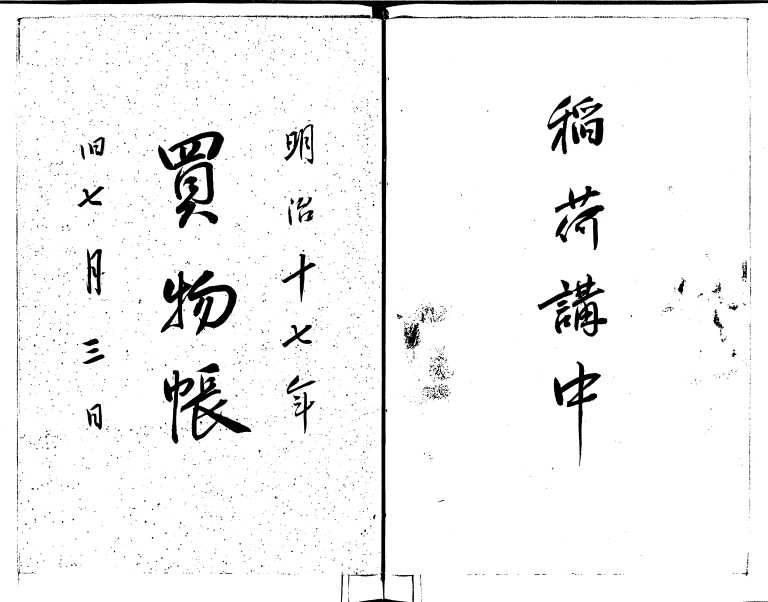 稲荷講中
明治十七年
買物帳
旧七月三日